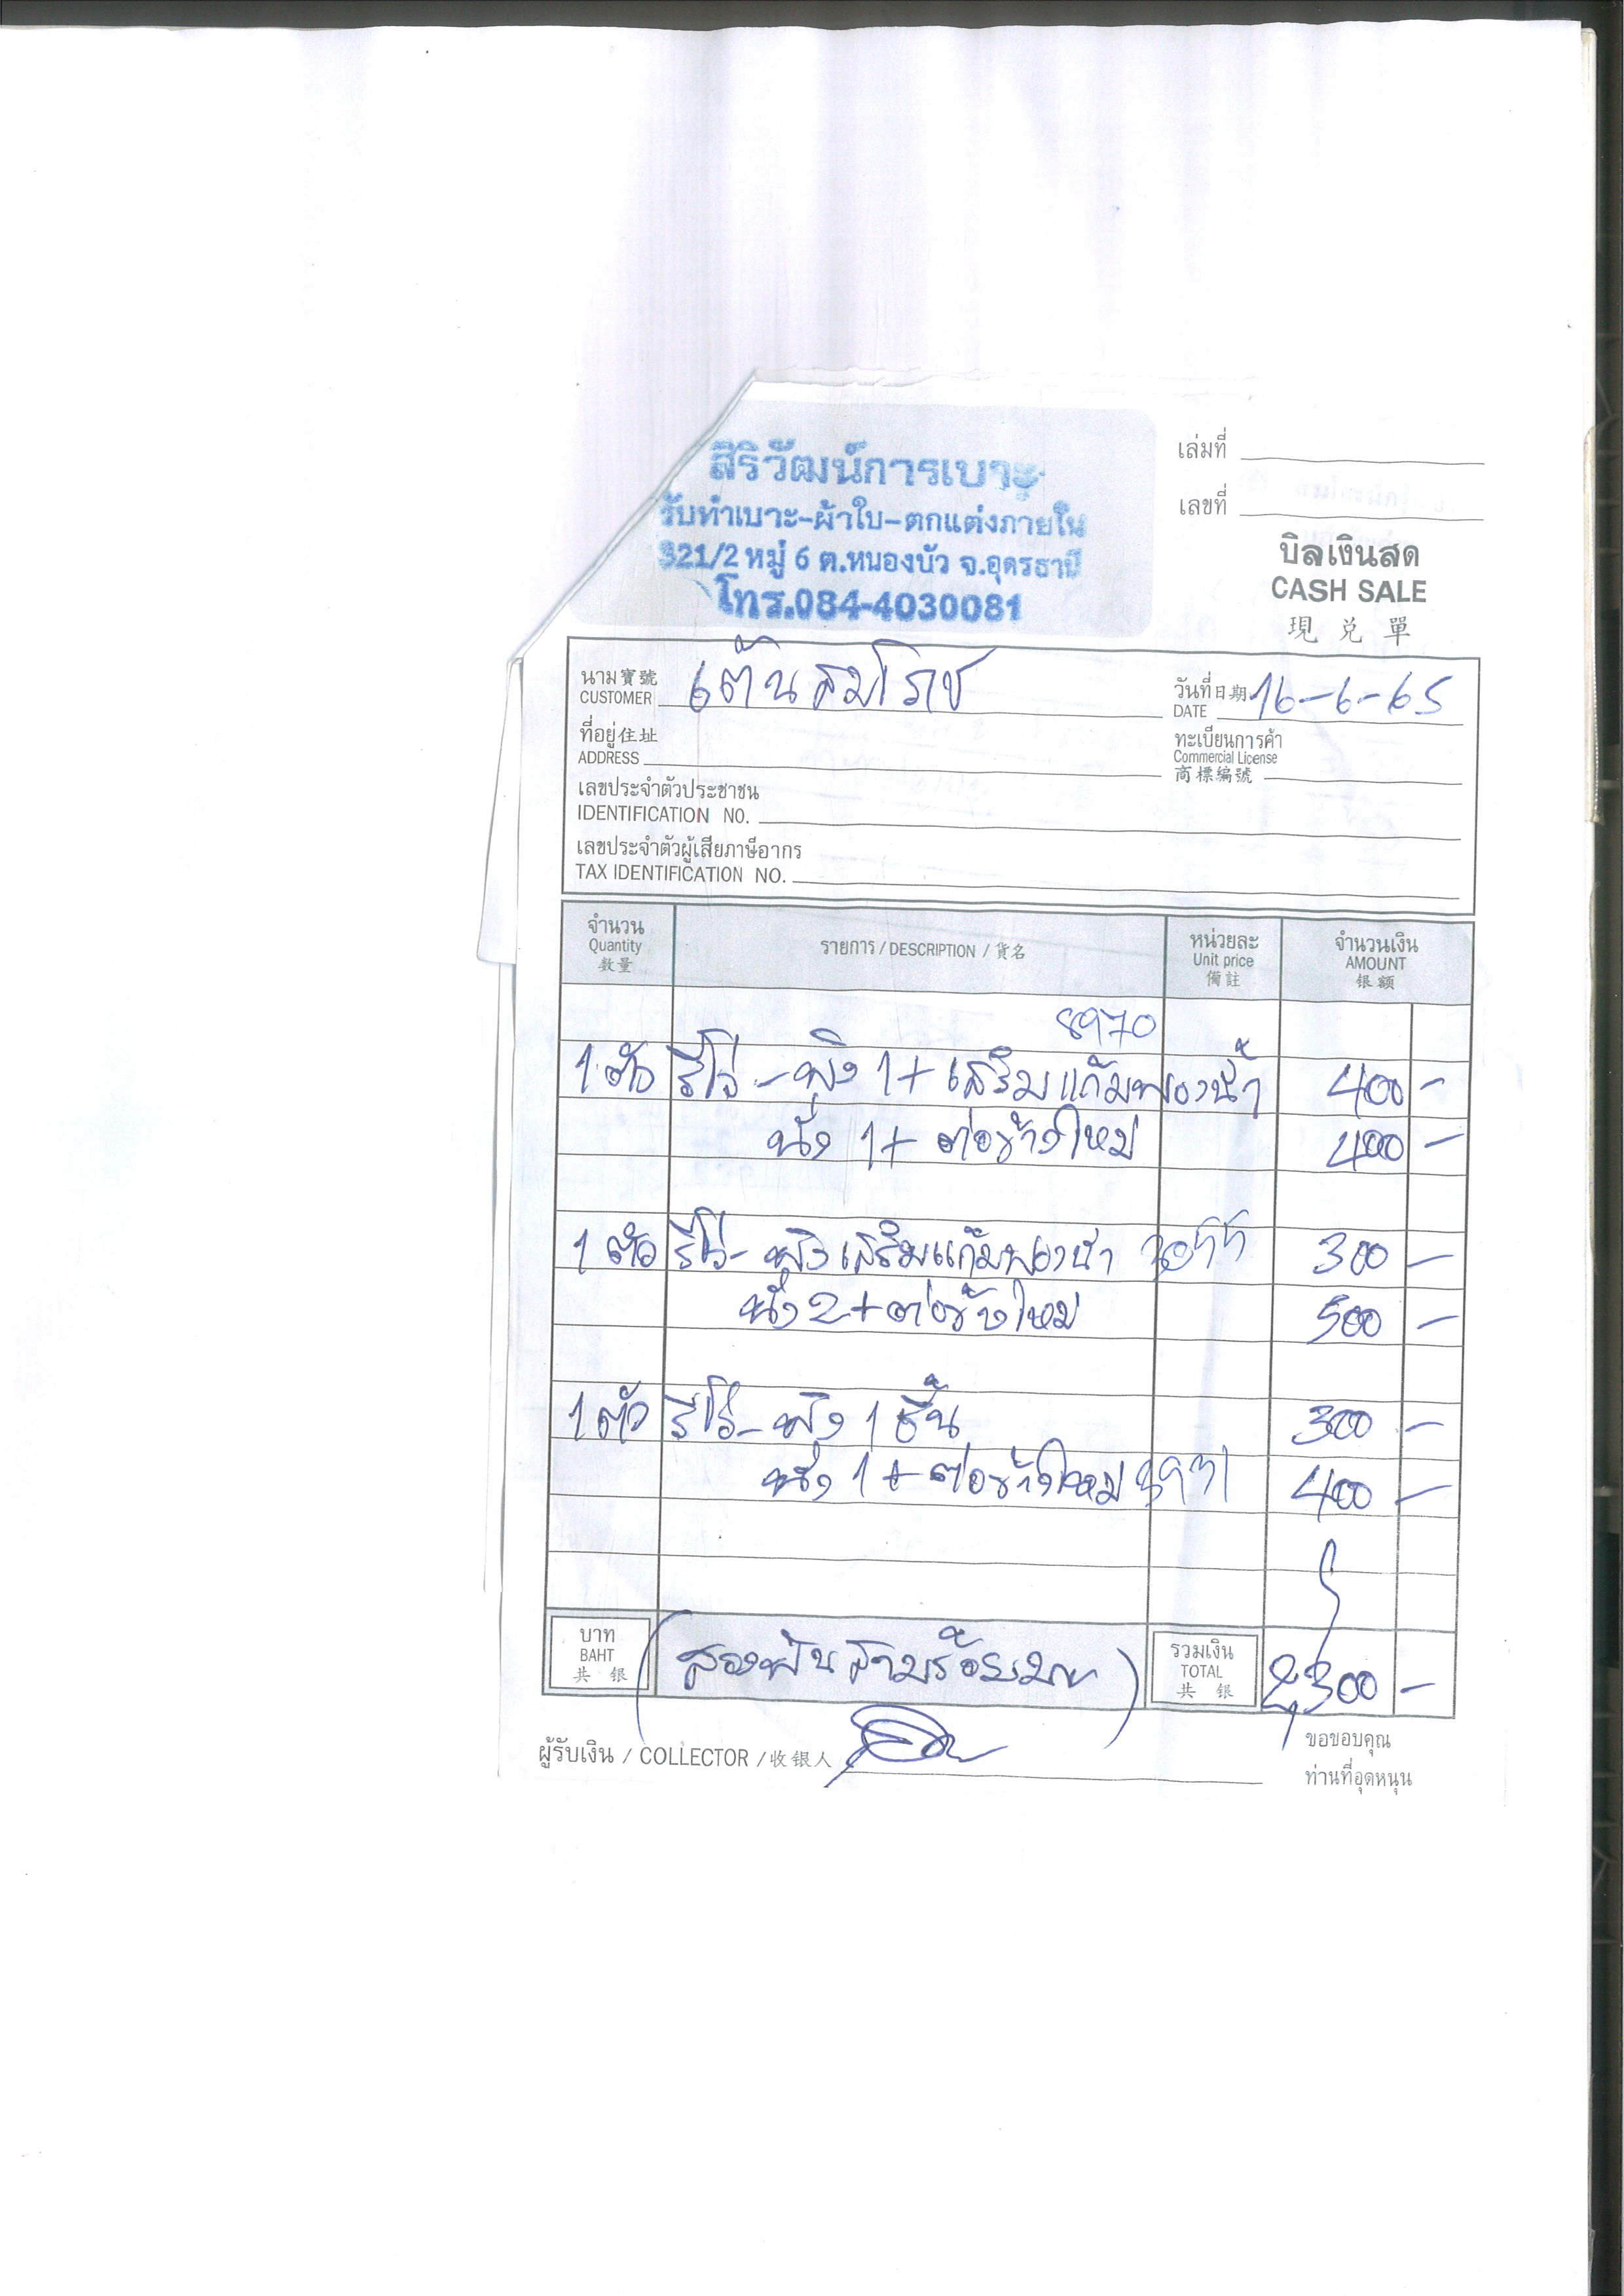 สิริวัฒน์การเบาะ
รับทำเบาะ-ผ้าใบ-ตกแต่งภายใน
321/2 หมู่ 6 ต.หนองบัว จ.อุดรธานี
โทร.084-4030081
เล่มที่
เลขที่
บิลเงินสด
CASH SALE
現兑單
นาม寶號 เต้นสมโรช
CUSTOMER
วันที่日期 16-6-65
DATE
ที่อยู่住址
ADDRESS
ทะเบียนการค้า
Commercial License
商標編號
เลขประจำตัวประชาชน
IDENTIFICATION NO.
เลขประจำตัวผู้เสียภาษีอากร
TAX IDENTIFICATION NO.
จำนวน
Quantity
数量
รายการ / DESCRIPTION / 貨名
หน่วยละ
Unit price
備註
จำนวนเงิน
AMOUNT
银额
8970
1 ตัว รีโว่ - พิง 1 + เสริมแก้มฟองน้ำ 400 -
นั่ง 1 + ต่อข้างใหม่ 400 -
1 ตัว รีโว่ - พิง เสริมแก้มฟองน้ำ 300 -
นั่ง 2 + ต่อข้างใหม่ 500 -
1 ตัว รีโว่ - พิง 1 ชิ้น 300 -
นั่ง 1 + ต่อข้างใหม่ 400 -
บาท
BAHT
共银
(สองพันสามร้อยบาท)
รวมเงิน
TOTAL
共银
2,300 -
ผู้รับเงิน / COLLECTOR / 收银人
ขอขอบคุณ
ท่านที่อุดหนุน